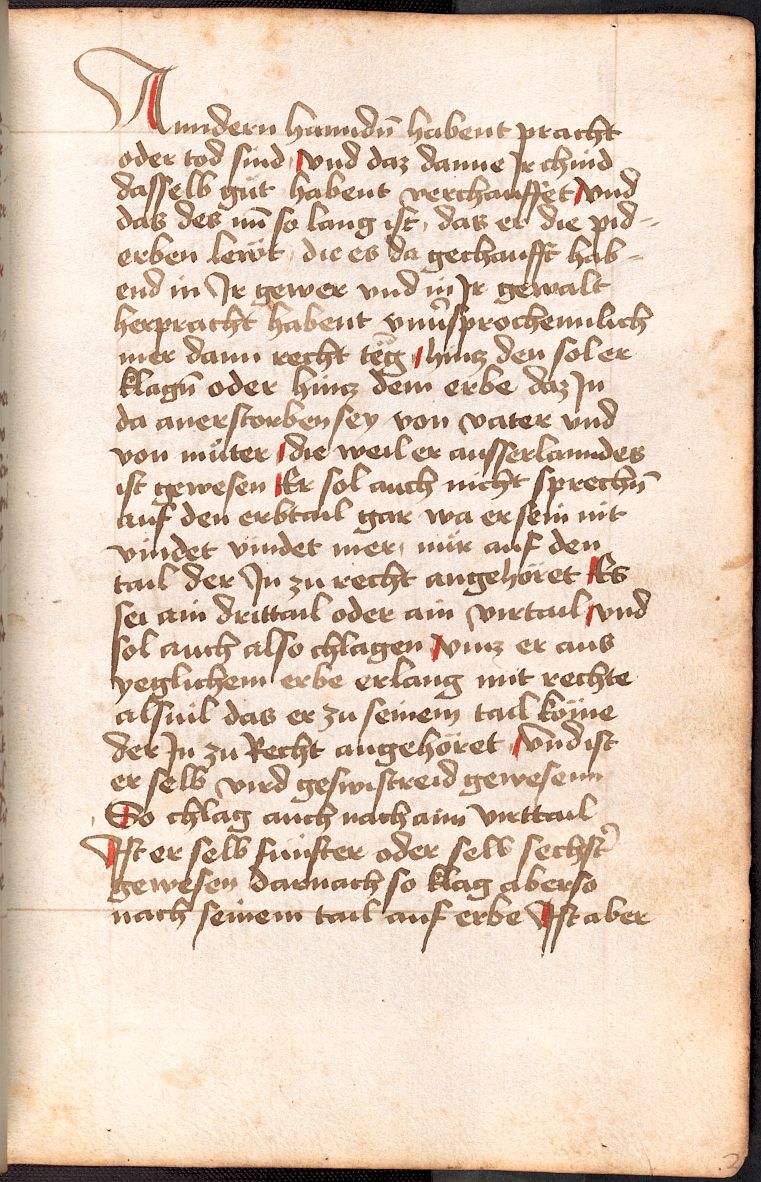 Anndern hanndn̄ habent pracht
oder tod sind vnd daz danne Jr chind
dasselb gůt habent verchauffet vnd
das des nū so lang ist, das er die pid-
erben lewt, die es da gechaufft hab-
end in Jr gewer vnd in Jr gewalt
herpracht habent vnu̓sprochennlich
mer dann recht teg hincz den sol er
klagn̄ oder hincz dem erbe daz Jn
da anerstorben sey von vater vnd
von můter die weil er ausserlanndes
ist gewesen Er sol auch nicht sprechn̄
auf den erbtail gar wa er sein nit
vindet vindet mer, nůr auf den
tail der Jn zu recht angehöret Es
sei ain drittail oder ain virtail vnd
sol auch also chlagen vncz er aus
yeglichem erbe erlang mit rechte
alsuil das er zu seinem tail köme
der Jn zu Recht angehöret, vnd ist
er selb vird geswistreid gewesenn
So chlag auch nach aim virttail
Ist er selb funfter oder selb sechst̓
gewesen darnach so klag aber so
nach seinem tail auf erbe Ist aber
2